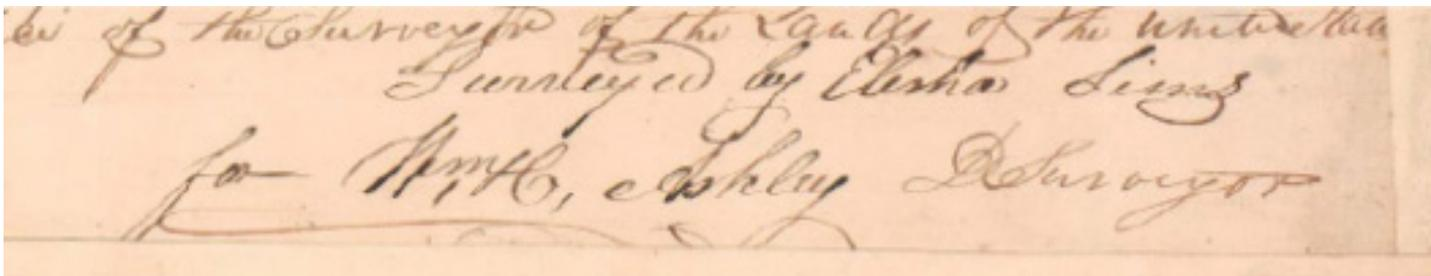 of the Surveyor of the Lands of the United
Surveyed by Elisha Sims
for Wm. H. Ashley D Surveyor